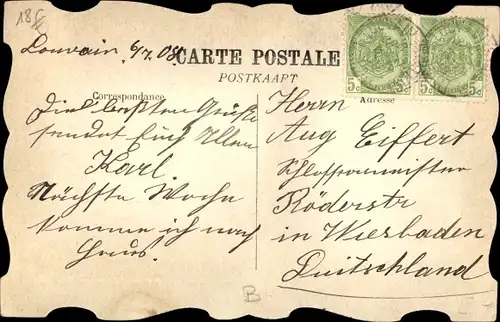 18
Louvain 6/7. 08
CARTE POSTALE
POSTKAART
Correspondance
Adresse
5c 5c
5c 5c
Die besten Grüße
sendet Euch Allen
Karl.
Nächste Woche
komme ich nach
Haus.
Herrn
Aug Eiffert
Schlossermeister
Röderstr
in Wiesbaden
Duitschland
B